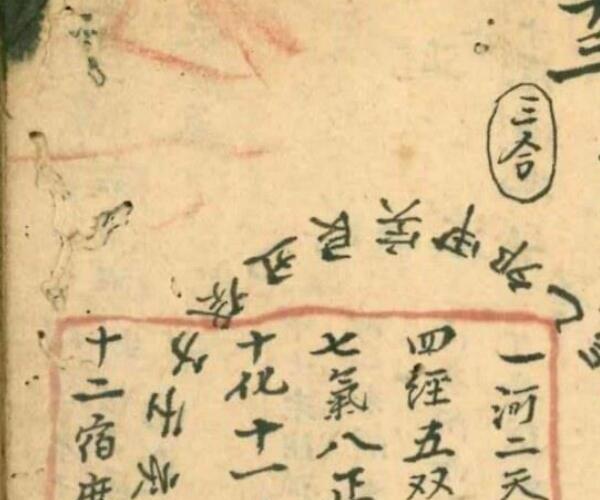 三合
乙卯甲寅艮丑癸
一河二天
四經五双
七氣八正
十化十一
十二宿